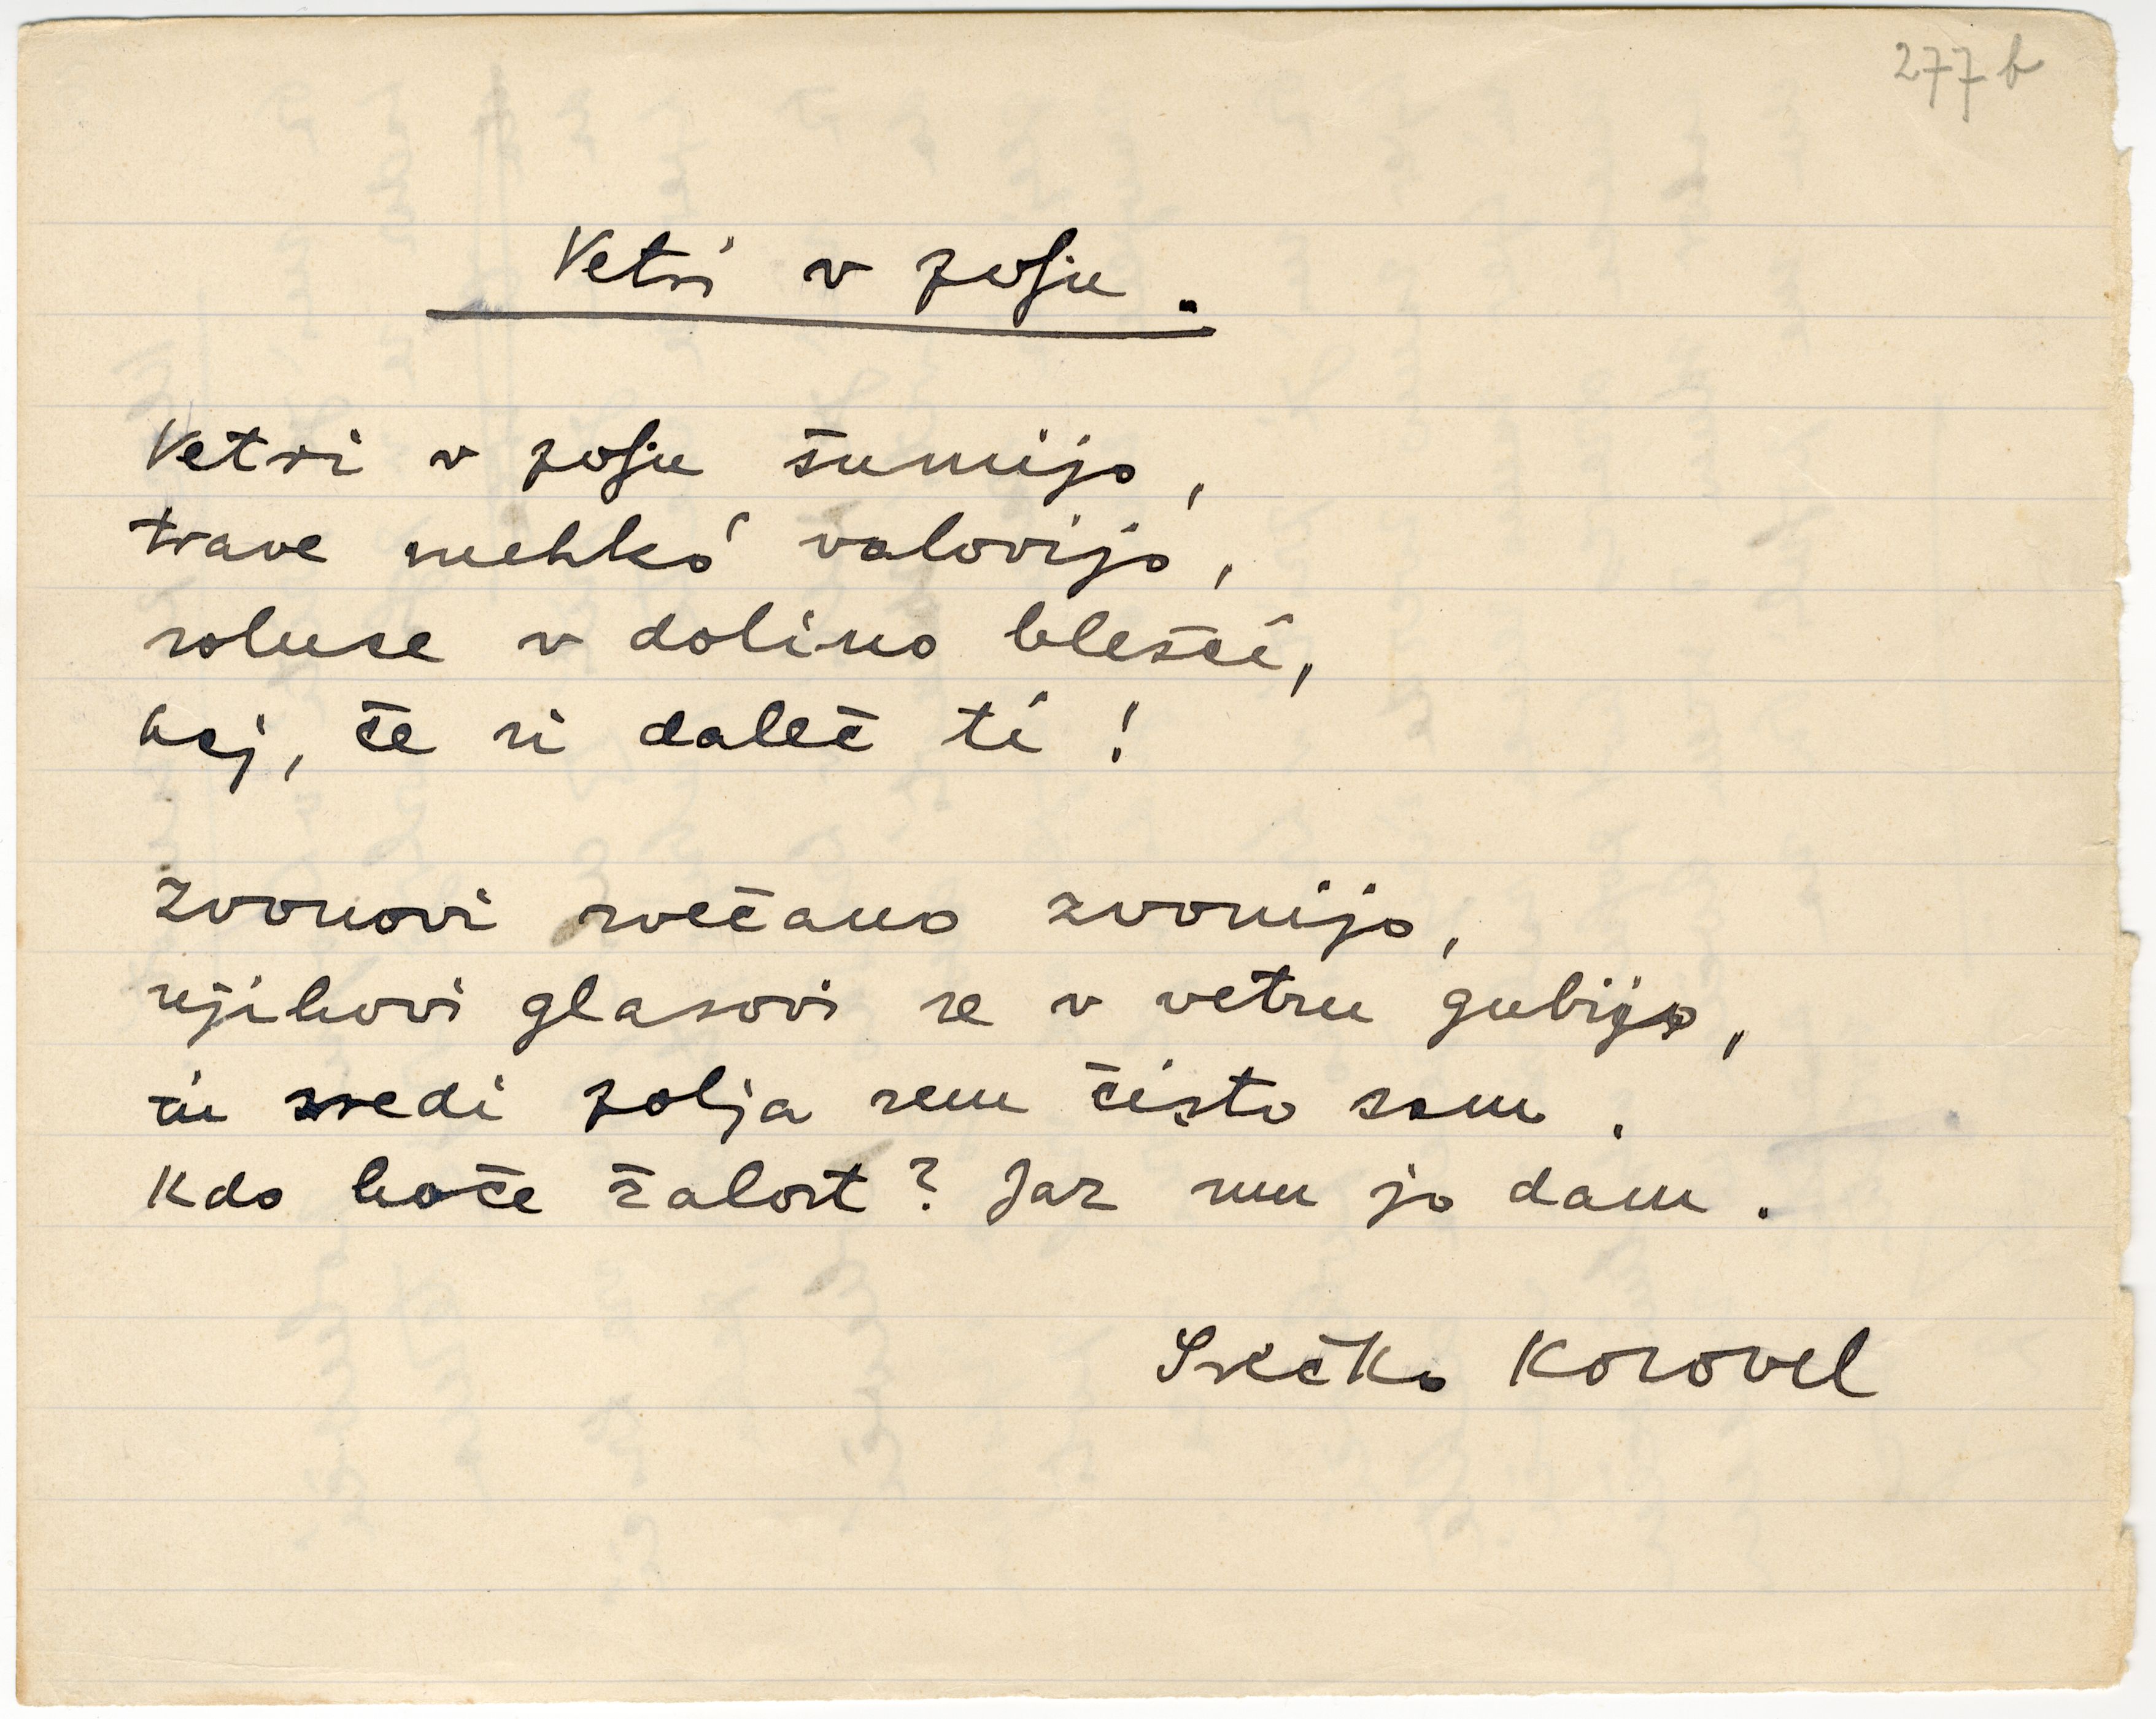 277 b
Vetri v polju.
Vetri v polju šumijo,
trave mehkó valovijo,
solnce v dolino blešči,
hej, če si daleč ti!
Zvonovi svečano zvonijo,
njihovi glasovi se v vetru gubijo,
in sredi polja sem čisto sam.
Kdo hoče žalost? Jaz mu jo dam.
Srečko Kosovel